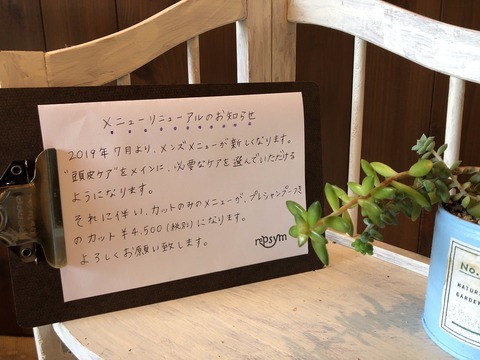 メニューリニューアルのお知らせ
2019年7月より、メンズメニューが新しくなります。
"頭皮ケア"をメインに、必要なケアを選んでいただける
ようになります。
それに伴い、カットのみのメニューが、プレシャンプーつき
のカット¥4,500(税別)になります。
よろしくお願い致します。
repsym
No.
NATUR
GARDEN